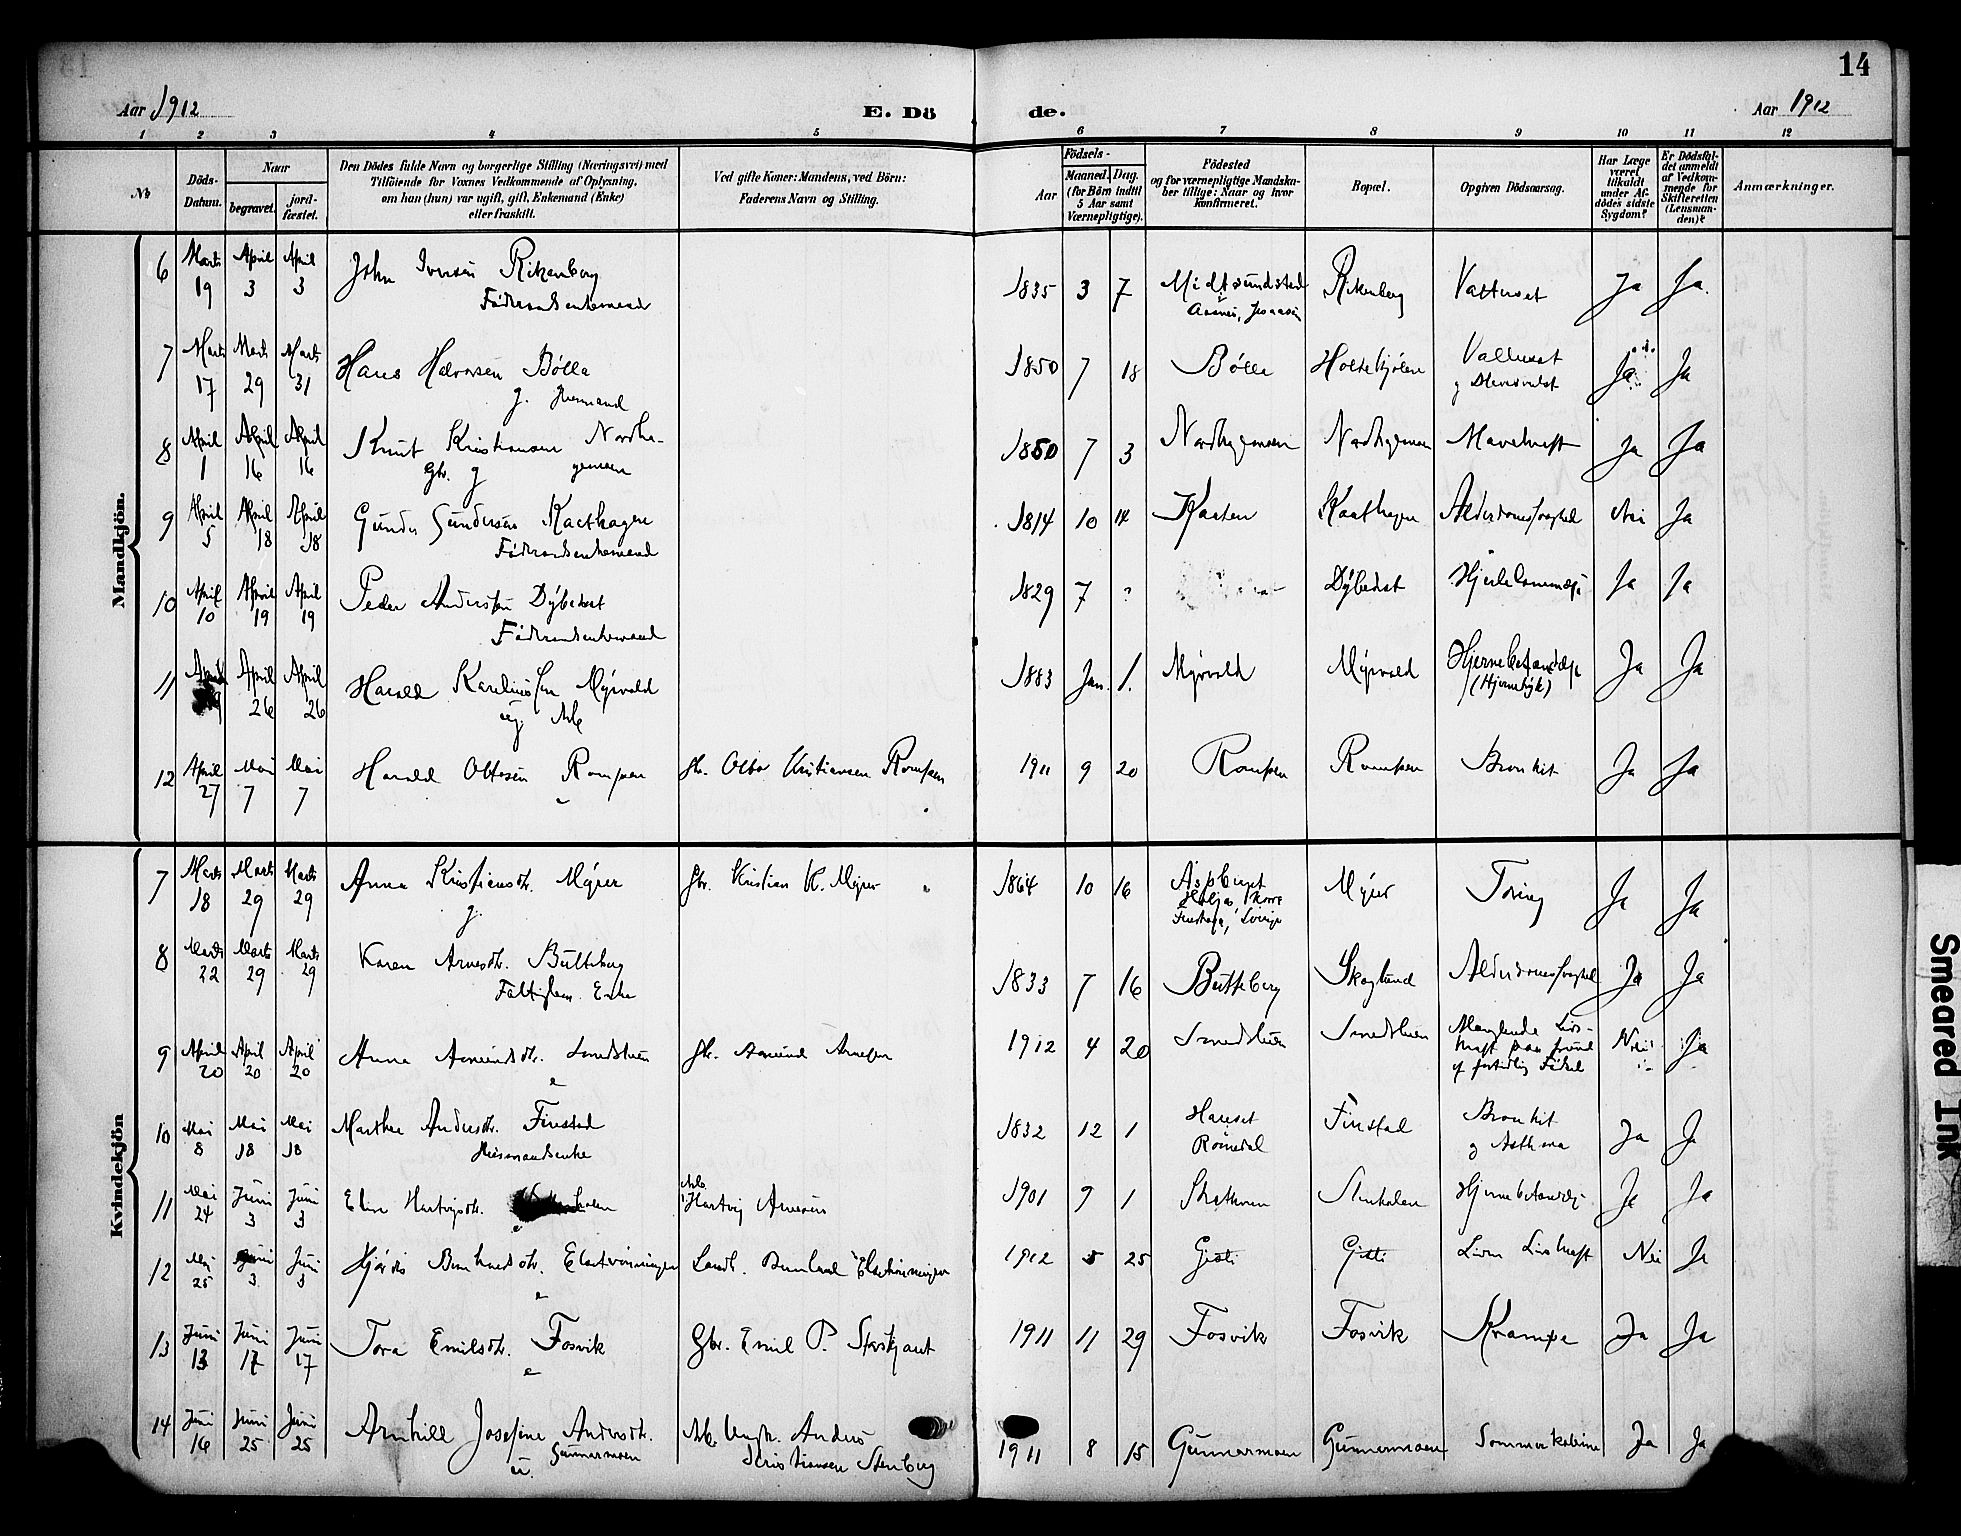 14
Aar 1912
E. Dö
de.
Aar 1912
1 2 3 4 5 6 7 8 9 10 11 12
No
Döds-Datum.
Naar
begravet.
jordfæstet.
Den Dödes fulde Navn og borgerlige Stilling (Næringsvei) med
Tilföiende for Voxnes Vedkommende af Oplysning,
om han (hun) var ugift, gift, Enkemand (Enke)
eller fraskilt.
Ved gifte Koner: Mandens, ved Börn:
Faderens Navn og Stilling.
Födsels-
Aar
Maaned. Dag.
(for Börn indtil
5 Aar samt
Værnepligtige).
Födested
og for værnepligtige Mandska-
ber tillige: Naar og hvor
konfirmeret.
Bopæl.
Opgiven Dödsaarsag.
Har Læge
været
tilkaldt
under Af-
dödes sidste
Sygdom?
Er Dödsfal-
det anmeldt
af Vedkom-
mende for
Skifteretten
(Lensman-
den)?
Anmærkninger.
Mandkjön.
6 Marts 19 April 3 April 3 John Iversen Rikenberg Föderaadsenkemand 1835 3 7 Midtsundstad Aasnes Rikenberg Vattersot Ja Ja.
7 Marts 17 Marts 29 Marts 31 Hans Bölla g. 1850 7 18 Bölla Vattersot Ja Ja
8 April 1 April 16 April 16 Knut Kristiansen Nordha-
gemoen Gbr. g 1850 7 3 Nordhagemoen Nordhagemoen Mavekræft Ja Ja
9 April 5 April 18 April 18 Gunder Gundersen Kaathagen Föderaadsenkemand 1814 10 14 Kaaten Kaathagen Alderdomssvaghed Nei Ja
10 April 10 April 19 April 19 Peder Andersen Dybedset Föderaadsenkemand 1829 7 ? Dybedset Ja Ja
11 April April 26 April 26 Harald Kareliussen Myrvold ug. Arb 1883 Jan. 1. Myrvold Myrvold Hjernebetændelse Ja Ja
12 April 27 Mai 7 Mai 7 Harald Ottosen Rompen e Gbr. Otto Kristiansen Rompen 1911 9 20 Rompen Rompen Bronkit Ja Ja
Kvindekjön
7 Marts 18 Marts 29 Marts 29 Anna Kristiansdtr. Myrer g. Gbr. Kristian K. Myrer 1864 10 16 Aspberget Myrer Tæring Ja Ja
8 Marts 22 Marts 29 Marts 29 Karen Arnesdtr. Butteberg Enke 1833 7 16 Butteberg Skoglund Alderdomssvaghed Ja Ja
9 April 20 April 20 April 20 Anna Asmundsdtr. Smedstuen e Gbr. Asmund Arnesen 1912 4 20 Smedstuen Smedstuen Manglende Livs-
kraft paa grund
af fortidlig Födsel Nei Ja
10 Mai 8 Mai 18 Mai 18 Marthea Andersdtr. Finstad Husmandsenke 1832 12 1 Romedal Finstad Bronkit
og Asthma Ja J
11 Mai 24 Juni 3 Juni 3 Eline Hartvigsdtr. e Arb Hartvig Arnesen 1901 9 1 Stenholen Hjernebetændelse Ja Ja
12 Mai 25 Juni 3 Juni 3 Hjördis Bernhardsdtr. e Landh. 1912 5 25 Liden Livskraft Nei Ja
13 Juni 13 Juni 17 Juni 17 Tora Emilsdtr. Fosvik e Gbr. Emil P. 1911 11 29 Fosvik Fosvik Krampe Ja Ja
14 Juni 16 Juni 25 Juni 25 Arnhild Josefine Andersdtr.
Gunnarmoen u. Arb. Anders
Kristiansen Stenberg 1911 8 15 Gunnarmoen Gunnarmoen Sommerkolerine Ja Ja
Smeared Ink